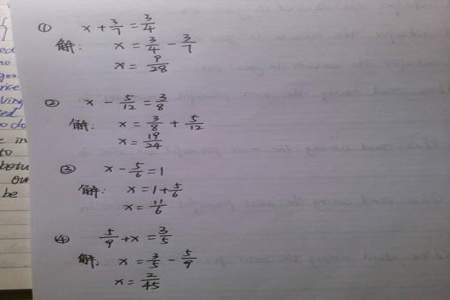 ① x + 3/7 = 3/4
解: x = 3/4 - 3/7
x = 9/28
② x - 5/12 = 3/8
解: x = 3/8 + 5/12
x = 19/24
③ x - 5/6 = 1
解: x = 1 + 5/6
x = 11/6
④ 5/9 + x = 3/5
解: x = 3/5 - 5/9
x = 2/45